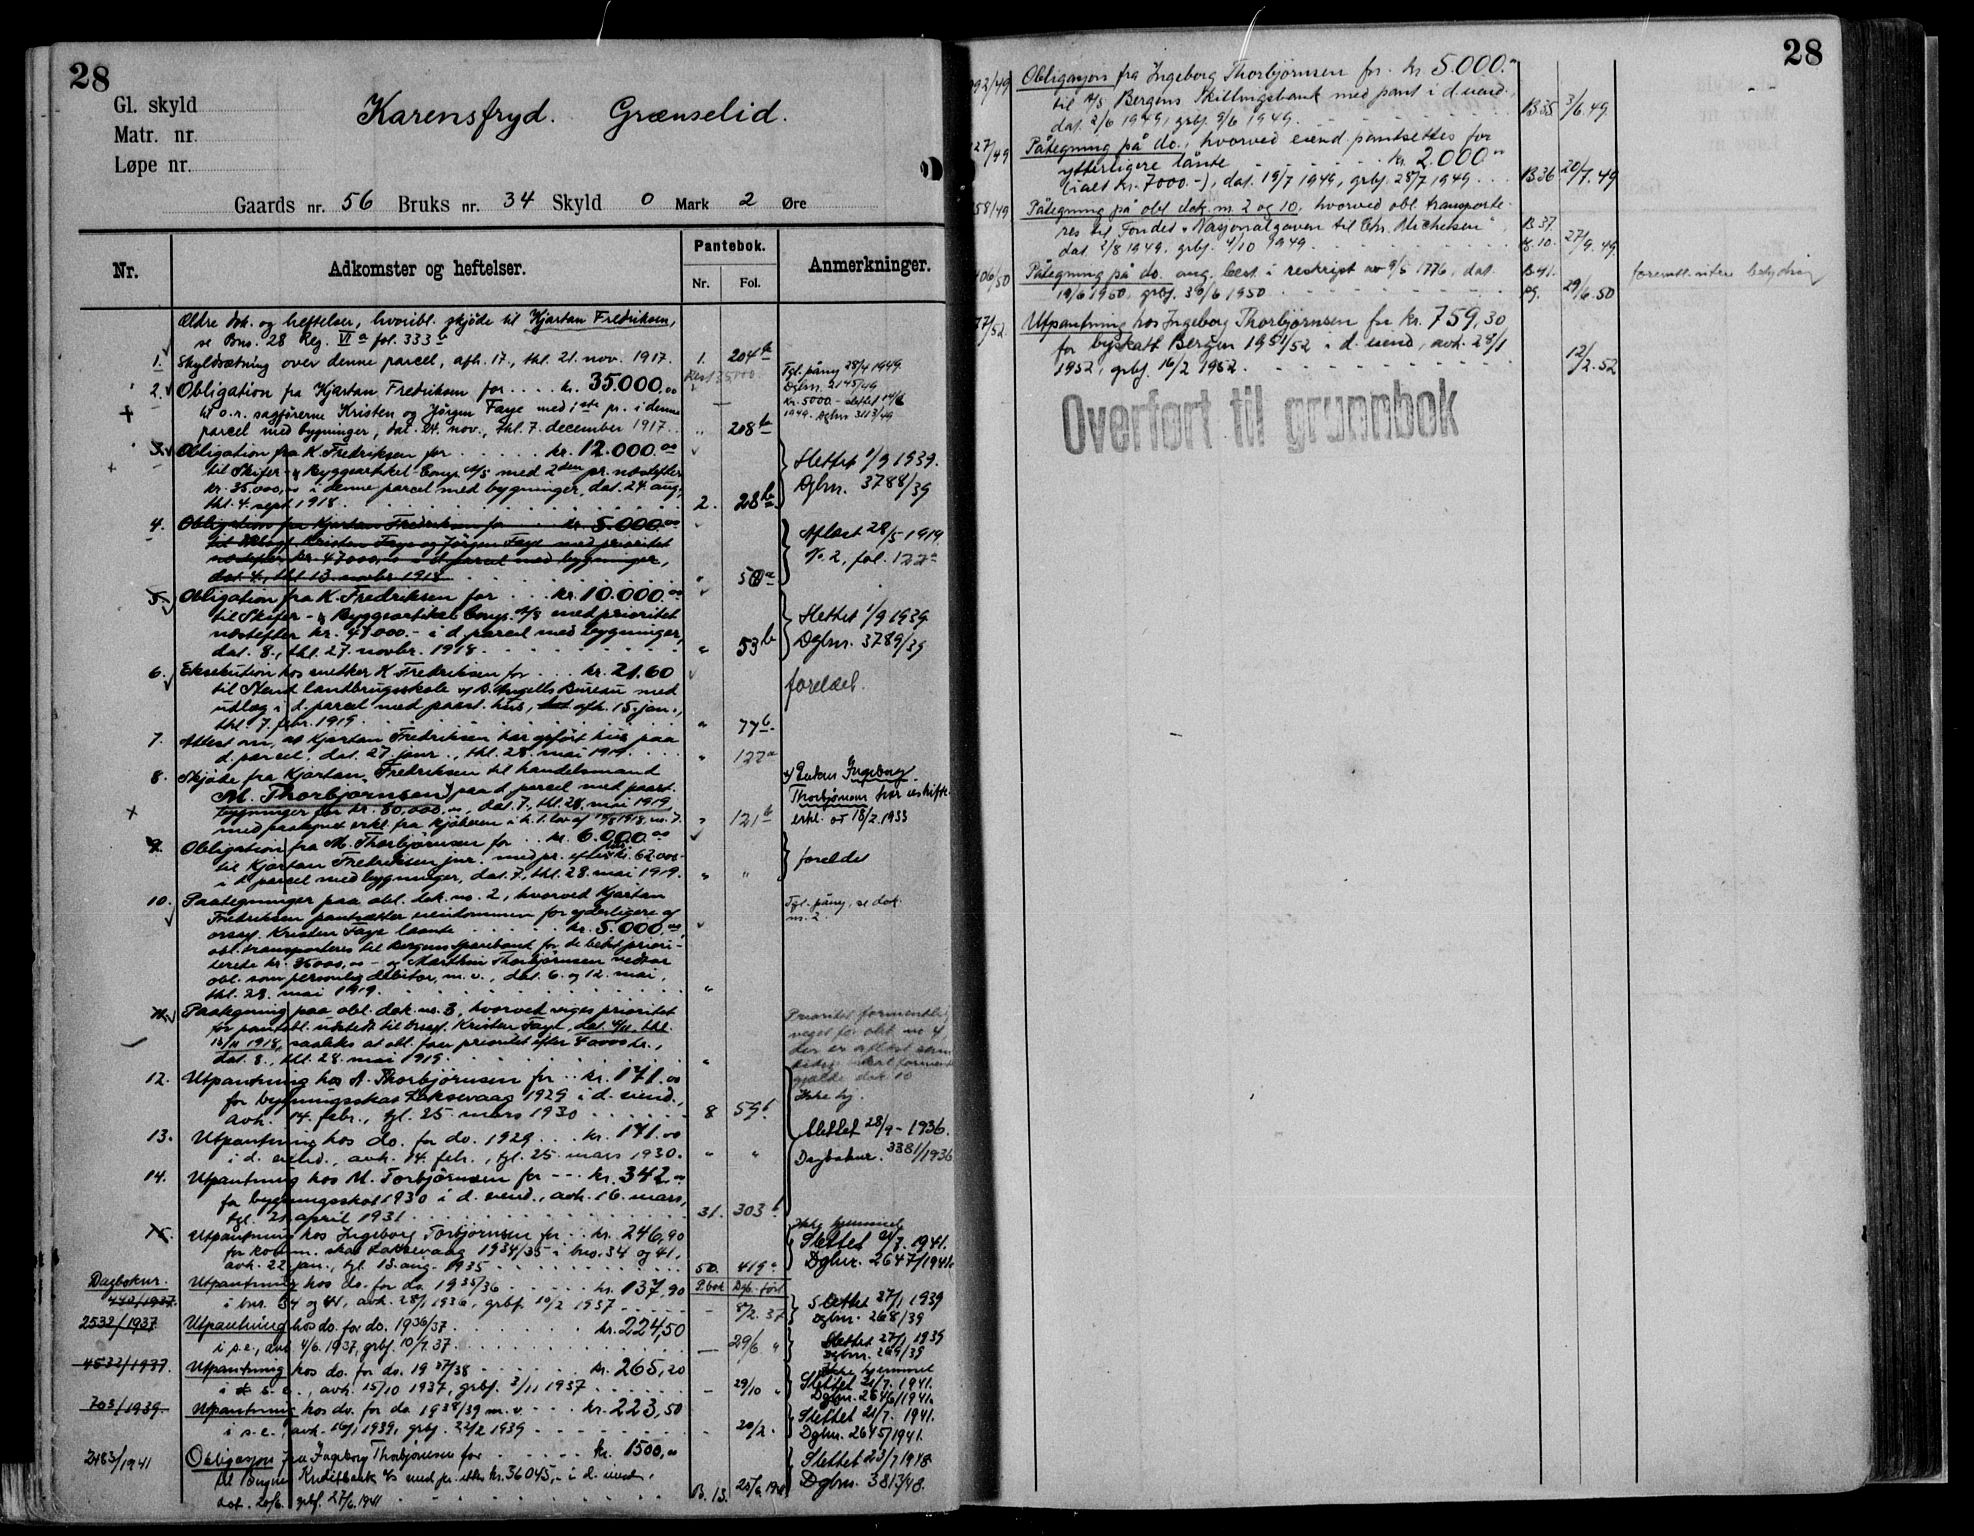 28
Gl. skyld
Matr. nr.
Løpe nr.
Karensfryd. Grænselid.
Gaards nr. 56 Bruks nr. 34 Skyld 0 Mark 2 Øre
Nr. Adkomster og heftelser. Pantebok. Nr. Fol. Anmerkninger.
Ældre dok. og heftelser, hvoribl. skjøde til Kjartan Fredriksen,
se Bno. 28 Reg. VI a fol. 333
1. Skyldsætning over denne parcel, afh. 17., thl. 21. nov. 1917. 1. 204 b
2. Obligation fra Kjartan Fredriksen for .... kr. 35.000,00
til o.r. sagførerne Kristen og Jørgen Faye med 1ste pr. i denne
parcel med bygninger, dat. 24. nov., thl. 7. december 1917. " 208 b
Tgl. påny 28/4 1949.
Dgbnr. 2145/49
kr. 5000.- slettet
1949. Dgbnr 3113/49
3. Obligation fra K. Fredriksen for ..... kr. 12.000,00
til Skifer- & Byggeartikel Comp. A/S med 2den pr. næstefter
kr. 35.000,00 i denne parcel med bygninger, dat. 24. aug.,
thl. 4. sept. 1918. 2. 28 b
Slettet 1/9 1939.
Dgbnr. 3788/39
4. Obligation fra Kjartan Fredriksen for .. kr. 5.000,00
til Kristen Faye og Jørgen Faye med prioritet
næstefter kr. 47000,00 i d. parcel med bygninger,
dat. 4., thl. 13. novbr. 1918 " 50 a
Aflæst 28/5 1919
No. 2, fol. 122 a
5. Obligation fra K. Fredriksen for ... kr. 10.000,00
til Skifer- & Byggeartikel Comp. A/S med prioritet
næstefter kr. 47000.- i d. parcel med bygninger,
dat. 8., thl. 27. novbr. 1918. " 53 b
Slettet 1/9 1939
Dgbnr. 3789/39
6. Eksekution hos snedker K. Fredriksen for ... kr. 21.60
til Stend landbrugsskole v/ Bureau med
udlæg i d. parcel med paast. hus, afh. 15. jan.,
thl. 7. febr. 1919. " 77 b
foreldet.
7. Attest om, at Kjartan Fredriksen har opført hus paa
d. parcel, dat. 27. janr., thl. 28. mai 1919. " 122 a
8. Skjøde fra Kjartan Fredriksen til handelsmand
M. Thorbjørnsen paa d. parcel med paast.
bygninger for kr. 80,000,00, dat. 7., thl. 28. mai 1919,
med paategnet erkl. fra kjøberen " 121 b
x) Enken Ingeborg
Thorbjørnsen har uskifte-
erkl. av 18/2. 1933
9. Obligation fra M. Thorbjørnsen for .. kr. 6.000,00
til Kjartan Fredriksen jnr. med pr. efter kr. 62000.-
i d. parcel med bygninger, dat. 7., thl. 28. mai 1919. " "
foreldet
10. Paategninger paa obl. dok. no. 2, hvorved Kjartan
Fredriksen pantsætter eiendommen for yderligere af
orsagf. Kristen Faye laante ..... kr. 5.000,00,
obl. transporteres til Bergens Sparebank for de bedst priori-
terede kr. 35000,00 - og Marthin Thorbjørnsen vedtar
obl. som personlig debitor, m. v., dat. 6. og 12. mai,
thl. 28. mai 1919. "
Tgl. påny, se dok.
nr. 2
11. Paategning paa obl. dok. no. 3, hvorved viges prioritet
for pantobl. udstedt til orsagf. Kristen Faye, dat. 4/11, thl.
13/11 1918, saaledes at obl. faar prioritet efter 40000 kr.,
dat. 8., thl. 28. mai 1919. "
Prioritet formentlig
veget for obl. no 4,
der er aflæst
gjelde dok 10
12. Utpantning hos M. Thorbjørnsen for .. kr. 171.00
for bygningsskat Laksevaag 1929 i d. eiend.,
avh. 14. febr., tgl. 25. mars 1930 ..... 8 59 b
13. Utpantning hos do. for do. 1929 ... kr. 171.00
i d. eiend., avh. 14. febr., tgl. 25. mars 1930. " "
Slettet 28/9 - 1936.
Dagboknr. 3381/1936
14. Utpantning hos M. Torbjørnsen for --- kr. 342.00
for bygningsskat 1930 i d. eiend., avh. 16. mars,
tgl. 21. april 1931. 31. 303 b
15. Utpantning hos Ingeborg Torbjørnsen for .. kr. 246,90
for komm. skat Laksevaag 1934/35 i bno. 34 og 41.
avh. 22. jan., tgl. 13. aug. 1935 50. 419 a
Ikke hjemmel
Slettet 21/7. 1941.
Dgbnr. 2647/1941.
Dagboknr. P.bok Dgb. ført
442/1937. Utpantning hos do. for do. 1935/36 ..... kr. 137,90
i bnr. 34 og 41, avh. 28/1 1936, grbf. 10/2 1937 - 8/2. 37
Slettet 27/1 1939
Dgbnr. 268/39
2532/1937 Utpantning hos do. for do. 1936/37 ..... kr. 224,50
i s.e., avh. 4/6. 1937, grbf. 10/7. 37. - 29/6 "
Slettet 27/1 1939
Dgbnr. 269/39
4532/1937. Utpantning hos do. for do. 1937/38 ..... kr. 265,20
i s. e., avh. 15/10 1937, grbf. 3/11 1937 - 29/10 "
Ikke hjemmel
Slettet 21/7. 1941.
Dgbnr. 2646/1941.
703/1939. Utpantning hos do. for do. 1938/39 m.v. ... kr. 223,50
i s.e., avh. 16/1 1939, grbf. 22/2 1939 - 20/2.
Slettet 21/7. 1941.
Dgbnr. 2645/1941.
2483/1941 Obligasjon fra Ingeborg Thorbjørnsen for ..... kr. 1500,00
til Bergens Kreditbank A/S med pr. etter kr. 36045,- i d. eiend.
dat. 20/6. grbf. 27/6. 1941 B. 13. 25/6. 1941
Slettet 23/7 1948
Dgbnr. 3813/48.
28
92/49 Obligasjon fra Ingeborg Thorbjørnsen for. kr. 5.000.00
til A/S Bergens Skillingsbank med pant i d. eiend.,
dat. 2/6 1949, grbf. 9/6 1949. B 35 3/6. 49
27/49 Påtegning på do., hvorved eiend. pantsettes for
ytterligere lånte ..... kr. 2.000 00
(ialt kr. 7000.-), dat. 19/7 1949, grbf. 28/7 1949. .. B 36 20/7. 49
58/49 Påtegning på obl. dok. nr. 2 og 10, hvorved obl. transporte-
res til Fondet "Nasjonalgaven til Chr. Michelsen",
dat. 2/8 1949, grbf. 4/10 1949. B 37. s. 10. 27/9. 49
06/50 Påtegning på do. ang. best. i reskript av 9/5 1776, dat.
19/6 1950, grbf. 30/6 1950 B 41. pg. 29/6. 50
foremtl. uten betydning
77/52. Utpantning hos Ingeborg Thorbjørnsen for kr. 759,30
for byskatt Bergen 1951/52 i d. eiend, avh. 28/1
1952, grbf. 16/2 1952. 12/2. 52
Overført til grunnbok